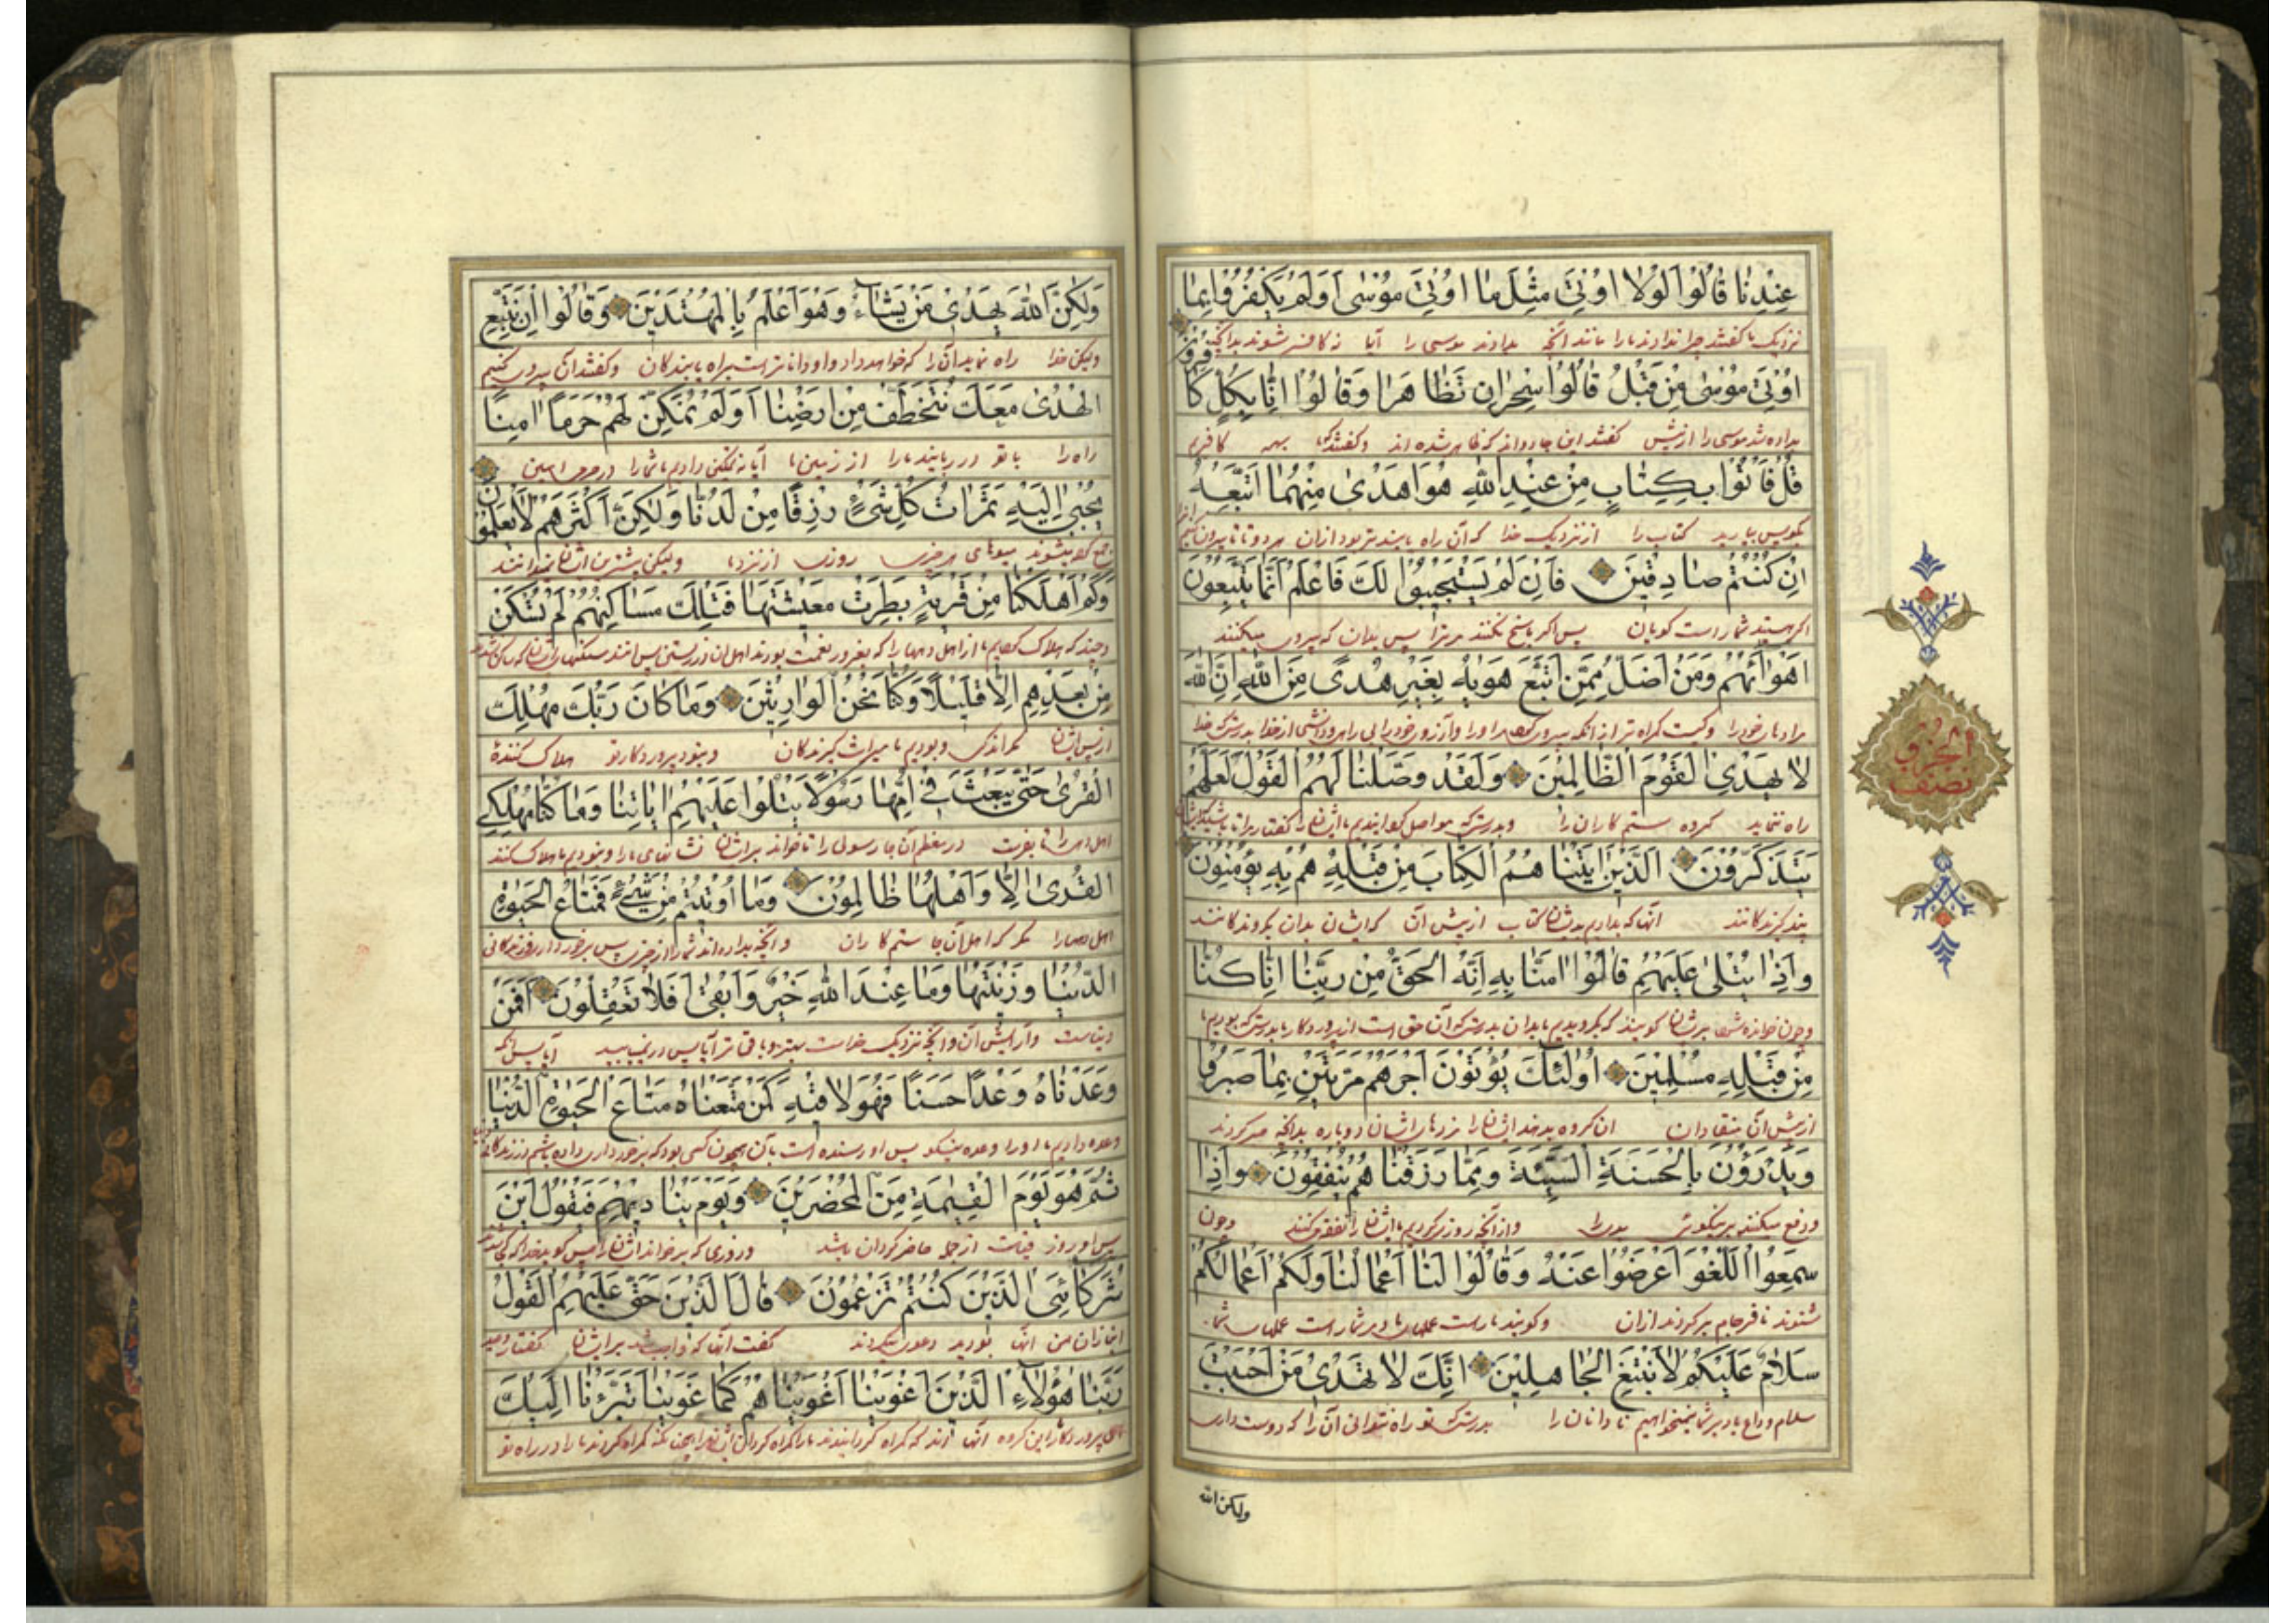 عِنْدِنَا قَالُوا لَوْلَا اُوتِيَ مِثْلَ مَا اُوتِيَ مُوسٰى اَوَلَمْ يَكْفُرُوا بِمَا
نزدیک ما گفتند چرا ندادند ما را مانند آنچه بدادند موسی را آیا نه کافر شوند بدانچه
اُوتِيَ مُوسٰى مِنْ قَبْلُ قَالُوا سِحْرَانِ تَظَاهَرَا وَقَالُوا اِنَّا بِكُلٍّ كَافِرُونَ
بداده شد موسی را از پیش گفتند این جادواند که ظاهر شده اند و گفتند که بهمه کافریم
قُلْ فَأْتُوا بِكِتَابٍ مِنْ عِنْدِ اللّٰهِ هُوَ اَهْدٰى مِنْهُمَا اَتَّبِعْهُ
بگو پس بیارید کتاب را از نزدیک خدا که آن راه یابنده تر بود ازان هر دو تا پیروی
اِنْ كُنْتُمْ صَادِقِينَ فَاِنْ لَمْ يَسْتَجِيبُوا لَكَ فَاعْلَمْ اَنَّمَا يَتَّبِعُونَ
اگر هستید شما راست گویان پس اگر پاسخ نکنند مر ترا پس بدان که پیروی میکنند
اَهْوَاءَهُمْ وَمَنْ اَضَلُّ مِمَّنِ اتَّبَعَ هَوٰيهُ بِغَيْرِ هُدًى مِنَ اللّٰهِ اِنَّ اللّٰهَ
خود را و کیست گمراه تر از انکه پیروی از خدا بدرستی که خدا
لَا يَهْدِي الْقَوْمَ الظَّالِمِينَ وَلَقَدْ وَصَّلْنَا لَهُمُ الْقَوْلَ لَعَلَّهُمْ
راه ننماید گروه ستم کاران را و بدرستی که گفتار را
يَتَذَكَّرُونَ اَلَّذِينَ اٰتَيْنَاهُمُ الْكِتَابَ مِنْ قَبْلِهِ هُمْ بِهِ يُؤْمِنُونَ
آنها که بدادیم بدیشان کتاب از پیش آن که ایشان بدان گروندگانند
وَاِذَا يُتْلٰى عَلَيْهِمْ قَالُوا اٰمَنَّا بِهِ اِنَّهُ الْحَقُّ مِنْ رَبِّنَا اِنَّا كُنَّا
و چون خوانده شود بریشان گویند که بگرویدیم ما بدان بدرستی که آن حق است از پروردگار ما بدرستی که بودیم ما
مِنْ قَبْلِهِ مُسْلِمِينَ اُولٰئِكَ يُؤْتَوْنَ اَجْرَهُمْ مَرَّتَيْنِ بِمَا صَبَرُوا
از پیش آن منقادان ان گروه بدهند ایشان را مزدهاشان دوباره بدانچه صبر کردند
وَيَدْرَؤُنَ بِالْحَسَنَةِ السَّيِّئَةَ وَمِمَّا رَزَقْنَاهُمْ يُنْفِقُونَ وَاِذَا
و دفع میکنند بنیکوئی بدی را و از آنچه روزی کردیم ما ایشان را نفقه کنند و چون
سَمِعُوا اللَّغْوَ اَعْرَضُوا عَنْهُ وَقَالُوا لَنَا اَعْمَالُنَا وَلَكُمْ اَعْمَالُكُمْ
شنوند نافرجام برگردند ازان و گویند ما راست عملهای ما و مر شما راست عملهای شما
سَلَامٌ عَلَيْكُمْ لَا نَبْتَغِي الْجَاهِلِينَ اِنَّكَ لَا تَهْدِي مَنْ اَحْبَبْتَ
سلام وداع باد بر شما نمیخواهیم ما نادانان را بدرستی که تو راه نتوانی آن را که دوست داری
ولكن الله
الجزو
نصف
وَلٰكِنَّ اللّٰهَ يَهْدِي مَنْ يَشَاءُ وَهُوَ اَعْلَمُ بِالْمُهْتَدِينَ وَقَالُوا اِنْ نَتَّبِعِ
ولیکن خدا راه نماید آن را که خواهد و او داناتر است براه یابندگان و گفتند اگر پیروی کنیم
الْهُدٰى مَعَكَ نُتَخَطَّفْ مِنْ اَرْضِنَا اَوَلَمْ نُمَكِّنْ لَهُمْ حَرَمًا اٰمِنًا
راه را با تو در ربایند ما را از زمین ما آیا نه تمکین دادیم ما در حرم امین
يُجْبٰى اِلَيْهِ ثَمَرَاتُ كُلِّ شَيْءٍ رِزْقًا مِنْ لَدُنَّا وَلٰكِنَّ اَكْثَرَهُمْ لَا يَعْلَمُونَ
میوهای هر چیزی روزی از نزد ما ولیکن بیشترین ایشان نمیدانند
وَكَمْ اَهْلَكْنَا مِنْ قَرْيَةٍ بَطِرَتْ مَعِيشَتَهَا فَتِلْكَ مَسَاكِنُهُمْ لَمْ تُسْكَنْ
و چند که هلاک
مِنْ بَعْدِهِمْ اِلَّا قَلِيلًا وَكُنَّا نَحْنُ الْوَارِثِينَ وَمَا كَانَ رَبُّكَ مُهْلِكَ
از پس ایشان مگر اندکی و بودیم ما میراث گیرندگان و نبود پروردگار تو هلاک کنندهٔ
الْقُرٰى حَتّٰى يَبْعَثَ فِي اُمِّهَا رَسُولًا يَتْلُوا عَلَيْهِمْ اٰيَاتِنَا وَمَا كُنَّا مُهْلِكِي
رسولی را تا خواند بر ایشان نشانهای ما را و نبودیم ما هلاک کننده
الْقُرٰى اِلَّا وَاَهْلُهَا ظَالِمُونَ وَمَا اُوتِيتُمْ مِنْ شَيْءٍ فَمَتَاعُ الْحَيٰوةِ
مگر که اهل آن جا ستم کاران و آنچه بداده اند شما را از چیزی پس
الدُّنْيَا وَزِينَتُهَا وَمَا عِنْدَ اللّٰهِ خَيْرٌ وَاَبْقٰى اَفَلَا تَعْقِلُونَ اَفَمَنْ
دنیاست و آرایش آن و آنچه نزدیک خداست بهتر و باقی تر آیا پس در نمییابید آیا پس آنکه
وَعَدْنَاهُ وَعْدًا حَسَنًا فَهُوَ لَاقِيهِ كَمَنْ مَتَّعْنَاهُ مَتَاعَ الْحَيٰوةِ الدُّنْيَا
وعده دادیم ما او را وعده نیکو پس او رسنده است بآن همچون کسی بود که
ثُمَّ هُوَ يَوْمَ الْقِيٰمَةِ مِنَ الْمُحْضَرِينَ وَيَوْمَ يُنَادِيهِمْ فَيَقُولُ اَيْنَ
پس او روز قیامت از جمله حاضر کردان باشد و روزی که بر خواند ایشان را پس گوید خدا که
شُرَكَائِيَ الَّذِينَ كُنْتُمْ تَزْعُمُونَ قَالَ الَّذِينَ حَقَّ عَلَيْهِمُ الْقَوْلُ
انبازان من آنها بودید دعوی گفت آنها که واجب شد بر ایشان گفتار
رَبَّنَا هٰؤُلَاءِ الَّذِينَ اَغْوَيْنَا اَغْوَيْنَاهُمْ كَمَا غَوَيْنَا تَبَرَّأْنَا اِلَيْكَ
ای پروردگار این گروه آنها اند که گمراه